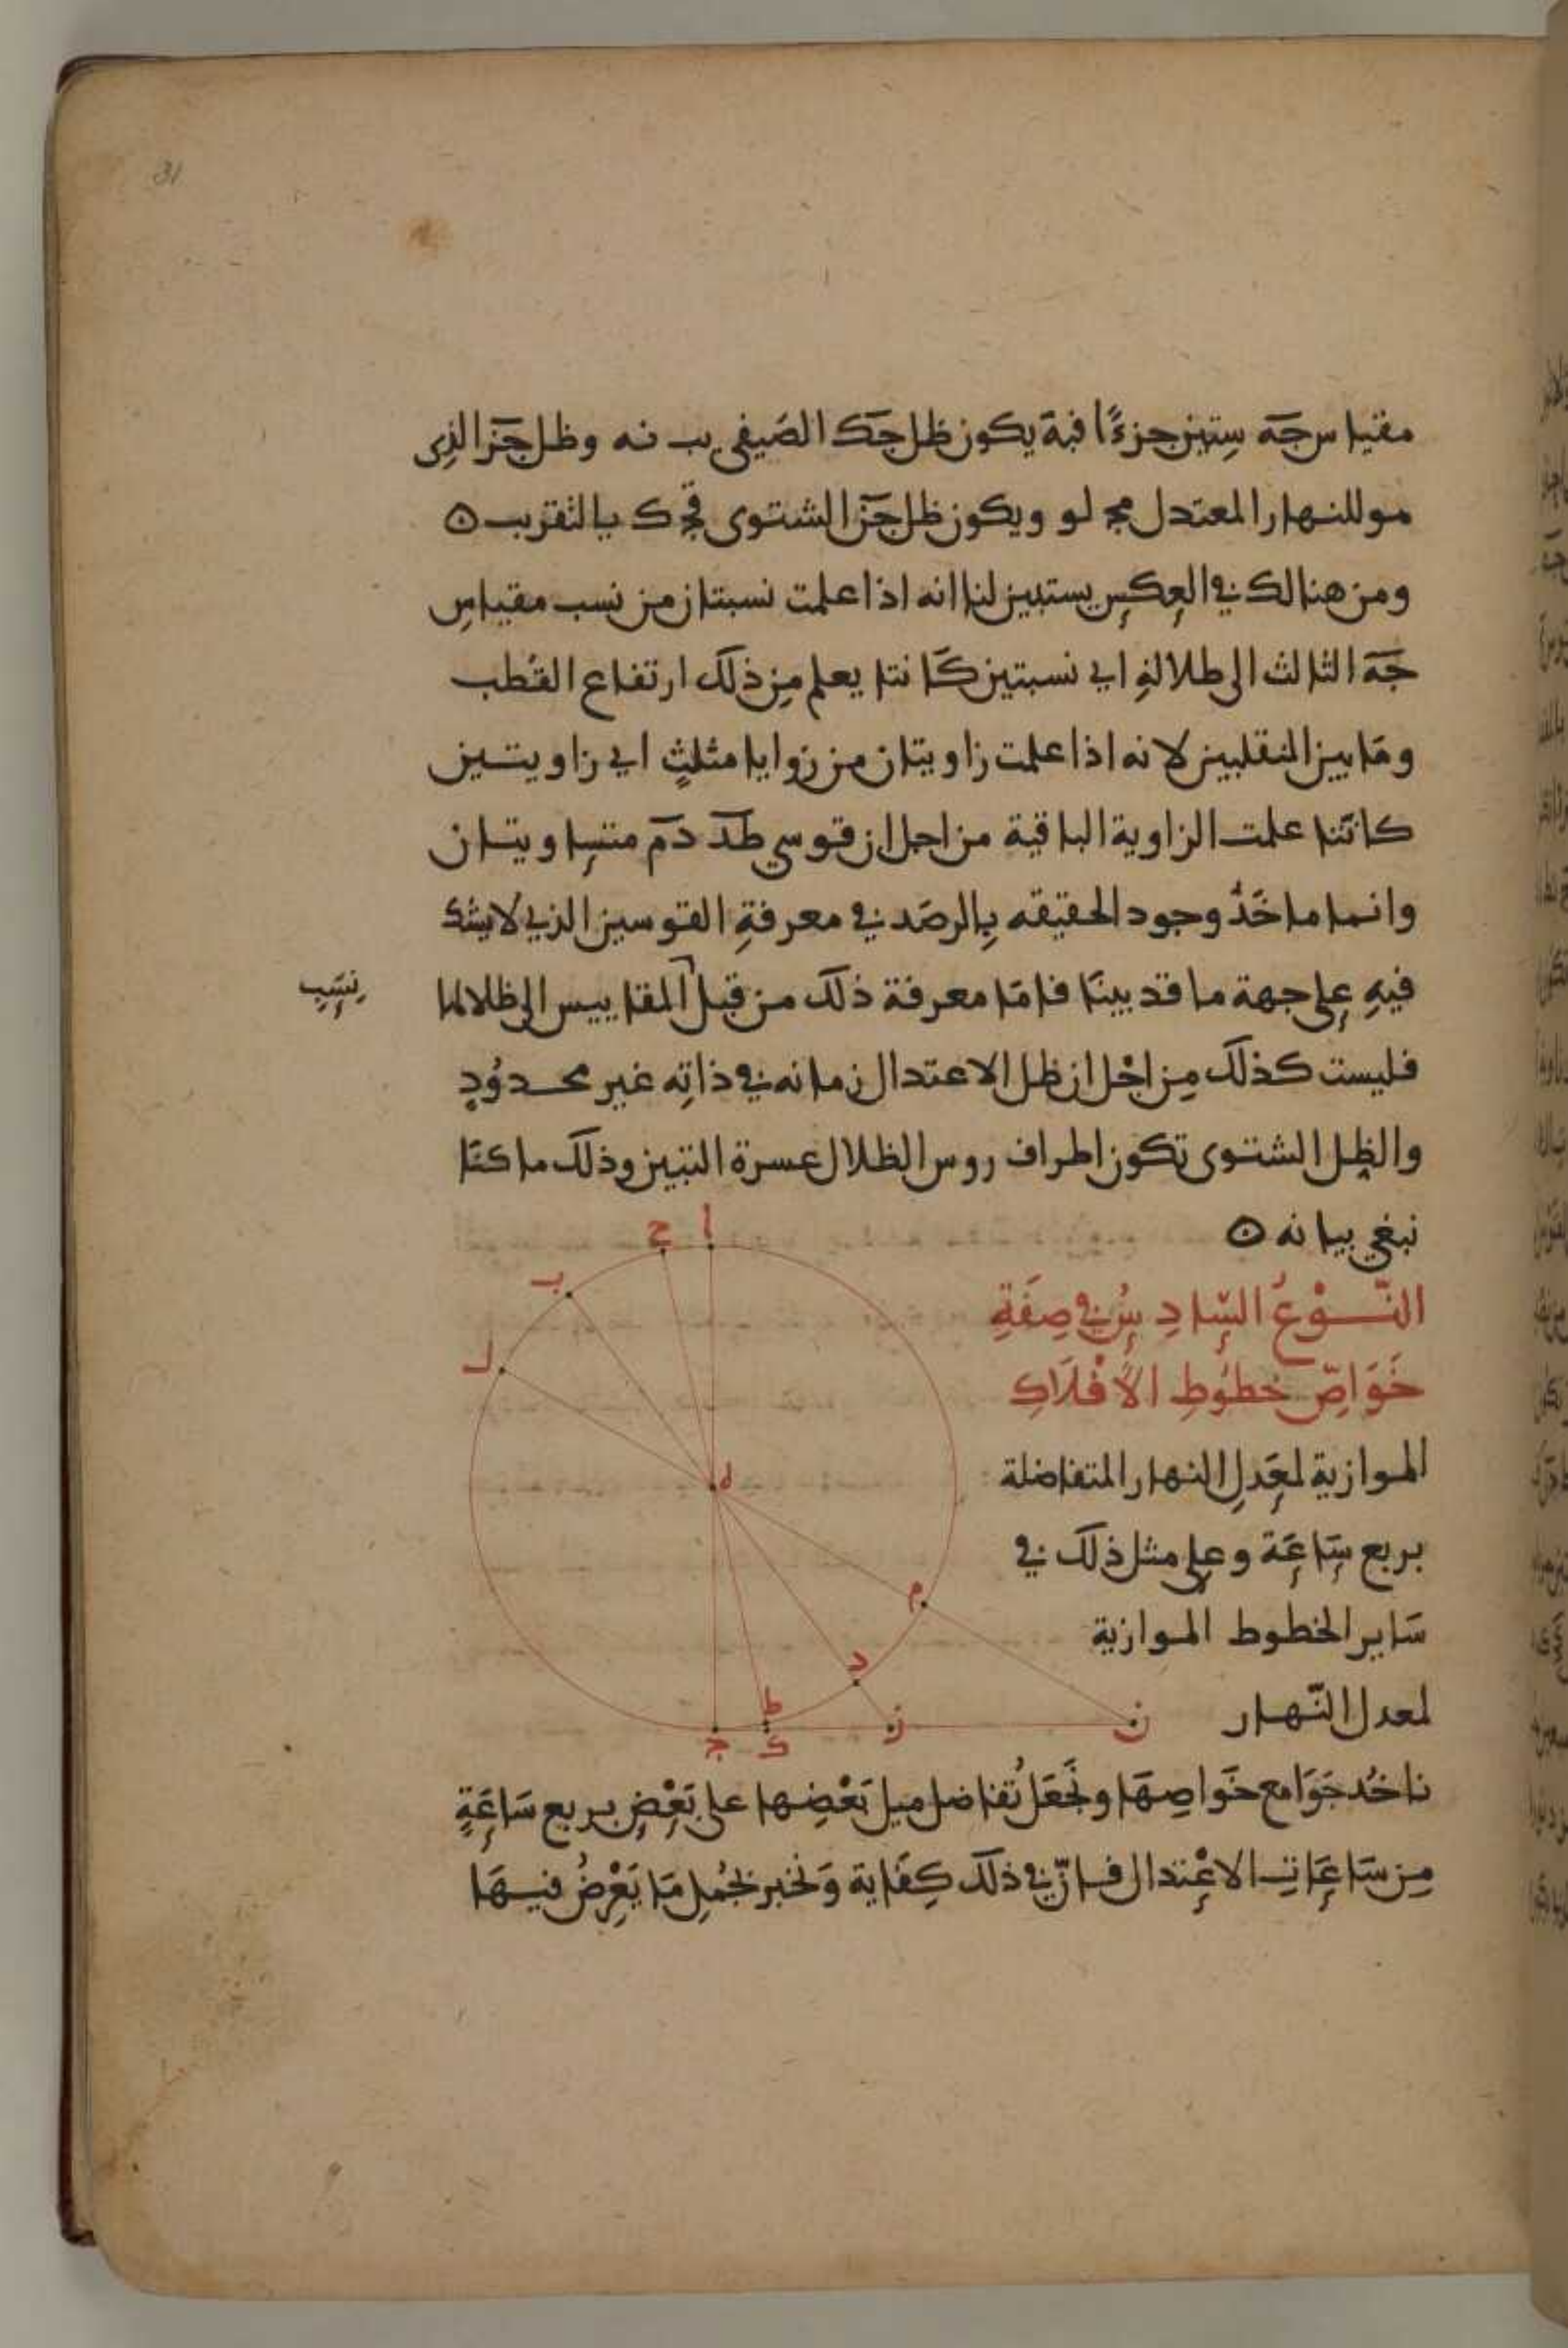 31
مقياس جه ستين جزءًا فبة يكون ظل جك الصيفي يب نه وظل جز الذي
هو للنهار المعتدل مج لو ويكون ظل جن الشتوي قج ك بالتقريب ه
ومن هنالك في العكس يستبين لنا انه اذا علمت نسبتان من نسب مقياس
جه الثالث الى ظلاله اي نسبتين كانتا يعلم من ذلك ارتفاع القطب
وما بين المنقلبين لانه اذا علمت زاويتان من زوايا مثلث اي زاويتين
كانتا علمت الزاوية الباقية من اجل ان قوسي طد دم متساويتان
وانما ماخذ وجود الحقيقه بالرصد في معرفة القوسين الذي لا يشك
فيه على جهة ما قد بينا فاما معرفة ذلك من قبل المقاييس الى ظلالها
نسب
فليست كذلك من اجل ان ظل الاعتدال زمانه في ذاته غير محدود
والظل الشتوي تكون اطراف روس الظلال عسرة التبين وذلك ما كنا
نبغي بيانه ه
النّوع السّادس في صفة
خواصّ خطوط الأفلاك
الموازية لمعدل النهار المتفاضلة
بربع ساعة وعلى مثل ذلك في
ساير الخطوط الموازية
لمعدل النّهار
ا
ح
ب
ل
ه
م
د
ط
ج
ك
ز
ن
ناخذ جوامع خواصها ونجعل تفاضل ميل بعضها على بعض بربع ساعة
من ساعات الاعتدال فانّ في ذلك كفاية ونخبر بجمل ما يعرض فيها